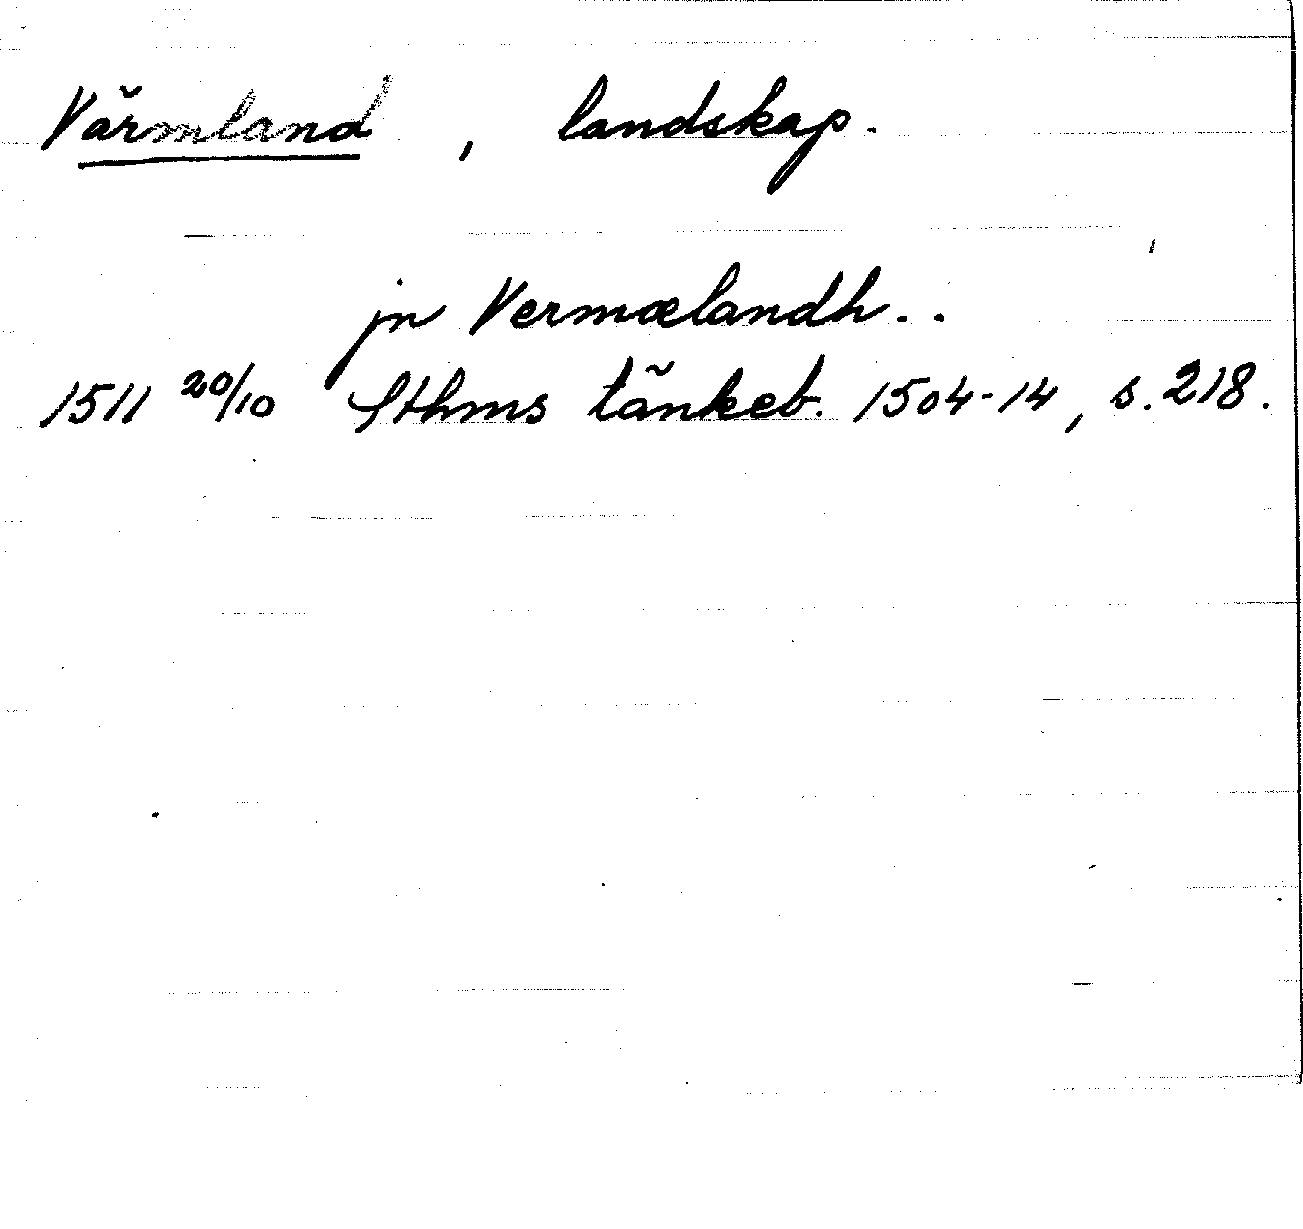 Värmland, landskap.
jn Vermælandh..
1511 20/10 Sthms tänkeb. 1504-14, s. 218.